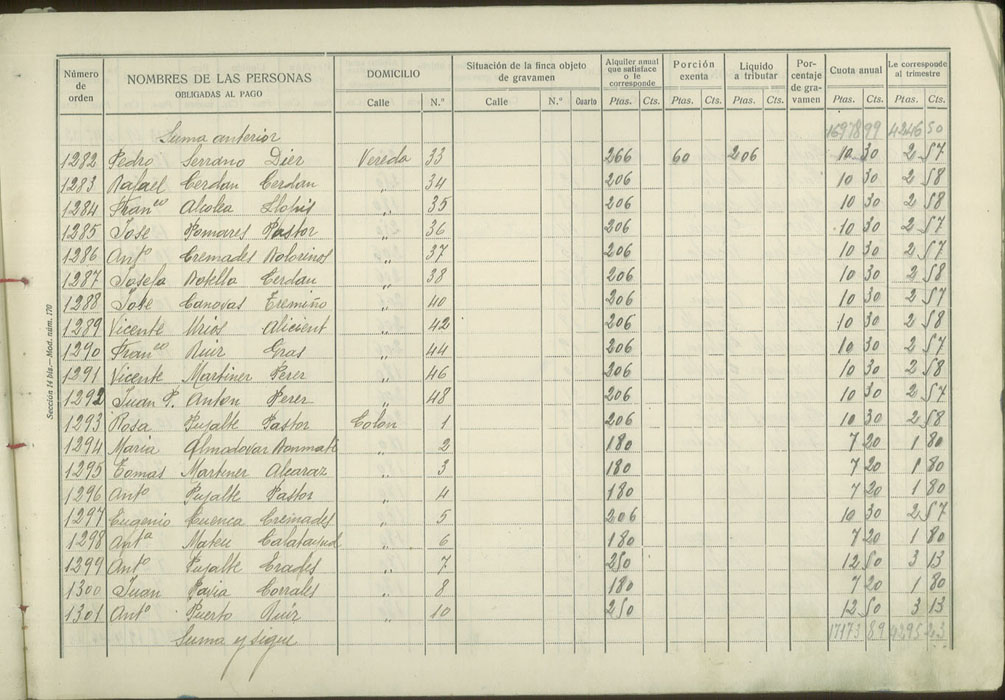 Número de orden | NOMBRES DE LAS PERSONAS OBLIGADAS AL PAGO | DOMICILIO | Situación de la finca objeto de gravamen | Alquiler anual que satisface o le corresponde | Porción exenta | Líquido a tributar | Porcentaje de gravamen | Cuota anual | Le corresponde al trimestre
Calle | N.º | Calle | N.º | Cuarto | Ptas. | Cts. | Ptas. | Cts. | Ptas. | Cts. | Ptas. | Cts. | Ptas. | Cts.
Suma anterior 16978 99 4246 50
1282 Pedro Serrano Diez Vereda 33 266 60 206 10 30 2 57
1283 Rafael Cerdan Cerdan " 34 206 10 30 2 58
1284 Franco Alcolea Llopis " 35 206 10 30 2 58
1285 Jose Pomares Pastor " 36 206 10 30 2 57
1286 Anto Cremades " 37 206 10 30 2 57
1287 Josefa Botella Cerdan " 38 206 10 30 2 58
1288 Jose Canovas Tremiño " 40 206 10 30 2 57
1289 Vicente Urios " 42 206 10 30 2 58
1290 Franco Ruiz Gras " 44 206 10 30 2 57
1291 Vicente Martinez Perez " 46 206 10 30 2 58
1292 Juan P. Anton Perez " 48 206 10 30 2 57
1293 Rosa Pujalte Pastor Colon 1 206 10 30 2 58
1294 Maria Almadovar Bonmati " 2 180 7 20 1 80
1295 Tomas Martinez Alcaraz " 3 180 7 20 1 80
1296 Anto Pujalte Pastor " 4 180 7 20 1 80
1297 Eugenio Cuenca Cremades " 5 206 10 30 2 57
1298 Anta Mateu Calatayud " 6 180 7 20 1 80
1299 Anto Pujalte Prades " 7 250 12 50 3 13
1300 Juan Pavia Corrales " 8 180 7 20 1 80
1301 Anto Puerto Ruiz " 10 250 12 50 3 13
Suma y sigue 17173 89 4295 23
Sección 14 bis.—Mod. núm. 170